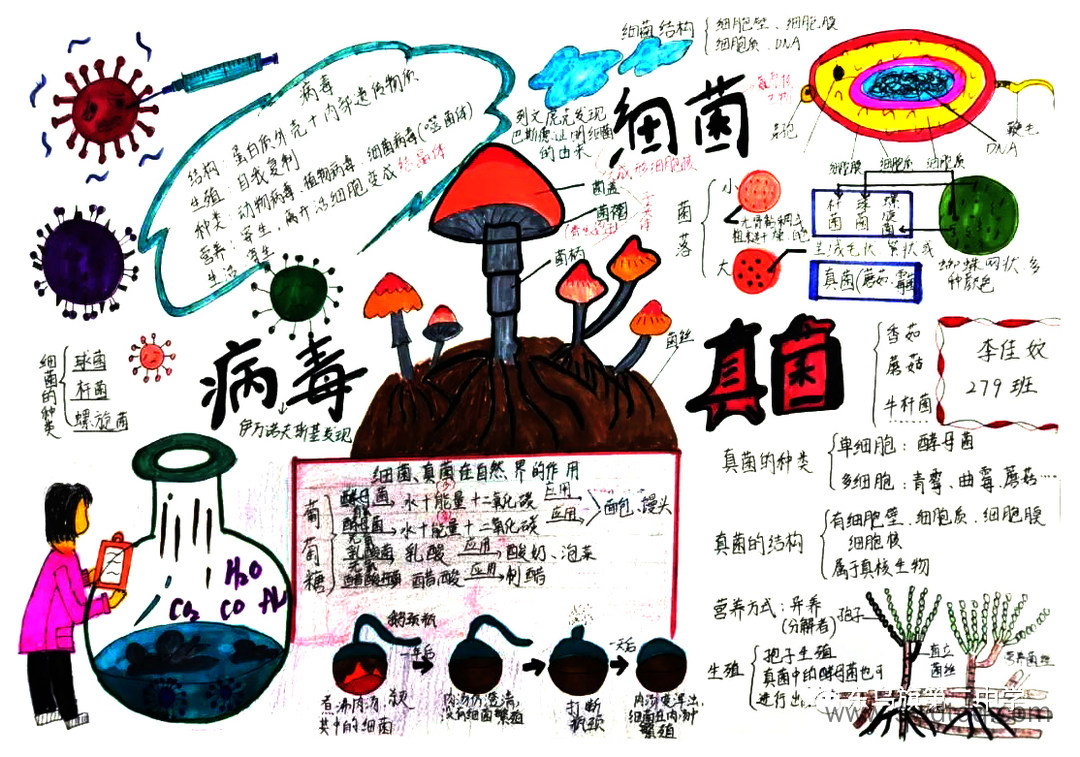 细菌结构 细胞壁、细胞膜
细胞质、DNA
病毒
结构：蛋白质外壳+内部遗传物质
生殖：自我复制
种类：动物病毒、植物病毒、细菌病毒(噬菌体)
营养：寄生，离开活细胞变成结晶体
生活：寄生
列文虎克发现
巴斯德证明细菌
的由来
细菌
无成形细胞核
芽孢
鞭毛
DNA
细胞膜 细胞质 细胞质
菌盖
菌褶
菌柄
菌丝
菌落
小
大
杆菌 球菌 螺旋菌
真菌(蘑菇、霉菌
蜘蛛网状 多
种颜色
细菌的种类
球菌
杆菌
螺旋菌
病毒
伊万诺夫斯基发现
真菌
香菇
蘑菇
牛杆菌
李佳姣
279班
真菌的种类
单细胞：酵母菌
多细胞：青霉、曲霉、蘑菇…
真菌的结构
有细胞壁、细胞质、细胞膜
细胞核
属于真核生物
营养方式：异养
(分解者)
孢子
直立
菌丝
营养菌丝
生殖
孢子生殖
真菌中的酵母菌也可
进行出
细菌、真菌在自然界的作用
葡萄糖
酵母菌 水+能量+二氧化碳 应用
酵母菌 水+能量+二氧化碳 应用 面包、馒头
乳酸菌 乳酸 应用 酸奶、泡菜
醋酸 应用 制醋
H₂O
CO₂ CO
鹅颈瓶
一年后
一天后
煮沸肉汤，杀灭
其中的细菌
肉汤仍澄清，
没有细菌繁殖
打断
瓶颈
肉汤变浑浊，
细菌在肉汤中
繁殖